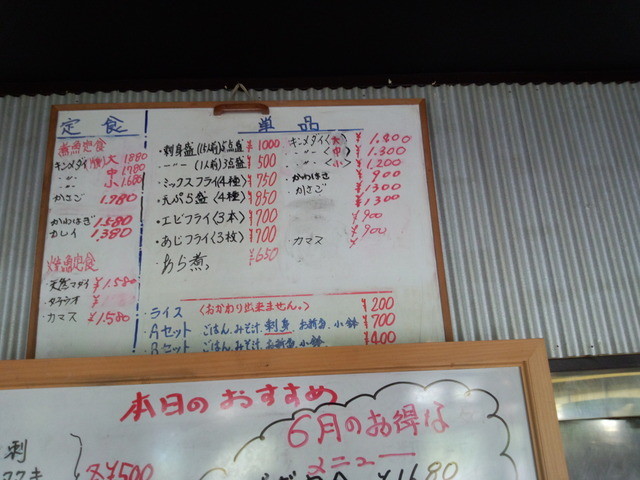 定食
煮魚定食
キンメダイ(煮)大 1880
〃 中 1.780
〃 小 1.680
かさご 1.980
かわはぎ 1.580
カレイ 1.380
焼魚定食
天然マダイ ¥1.580
タチウオ ¥
カマス ¥1.580
単品
・刺身盛(1人前)5点盛 ¥1000
〃 (1人前)3点盛 ¥500
・ミックスフライ(4種) ¥750
・天ぷら盛(4種) ¥850
・エビフライ(3本) ¥700
・あじフライ(3枚) ¥700
・あら煮 ¥650
キンメダイ〈大〉 ¥1.400
〃〈中〉 ¥1.300
〃〈小〉 ¥1.200
かわはぎ ¥900
かさご ¥1300
¥1300
¥900
¥900
・カマス ¥
・ライス 〈おかわり出来ません。〉 ¥200
・Aセット ごはん、みそ汁、刺身、お新香、小鉢 ¥700
・Bセット ごはん、みそ汁、お新香、小鉢 ¥400
本日のおすすめ
刺
¥500
6月のお得な
メニュー
¥1680